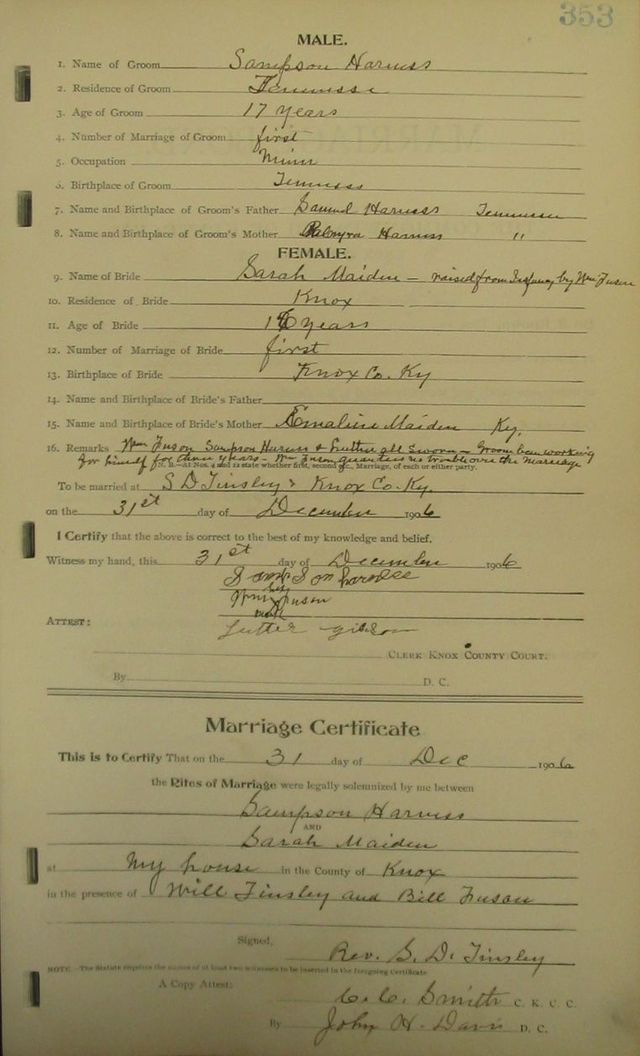 353
MALE.
1. Name of Groom Sampson Harness
2. Residence of Groom Tennessee
3. Age of Groom 17 years
4. Number of Marriage of Groom first
5. Occupation Miner
6. Birthplace of Groom Tennessee
7. Name and Birthplace of Groom's Father Samuel Harness Tennessee
8. Name and Birthplace of Groom's Mother Harness "
FEMALE.
9. Name of Bride Sarah Maiden – raised from Infancy by Wm Fuson
10. Residence of Bride Knox
11. Age of Bride 16 years
12. Number of Marriage of Bride first
13. Birthplace of Bride Knox Co. Ky
14. Name and Birthplace of Bride's Father
15. Name and Birthplace of Bride's Mother Emaline Maiden Ky.
16. Remarks Wm Fuson Sampson Harness & all Sworn – Groom been working
for himself for three years – Wm Fuson guarantees no trouble over the marriage
N. B.—At Nos. 4 and 12 state whether first, second, etc., Marriage, of each or either party.
To be married at S D Tinsley's Knox Co. Ky.
on the 31st day of December 1906
I Certify that the above is correct to the best of my knowledge and belief.
Witness my hand, this 31st day of December 1906
Sampson
his
Wm x Fuson
mark
ATTEST:
Lutter Gibson
CLERK KNOX COUNTY COURT.
By D. C.
Marriage Certificate
This is to Certify That on the 31 day of Dec 1906
the Rites of Marriage were legally solemnized by me between
Sampson Harness
AND
Sarah Maiden
at My house in the County of Knox
in the presence of Will Tinsley and Bill Fuson
Signed, Rev. S. D. Tinsley
NOTE—The Statute requires the names of at least two witnesses to be inserted in the foregoing Certificate
A Copy Attest: C. C. Smith C. K. C. C.
By John H. Davis D. C.